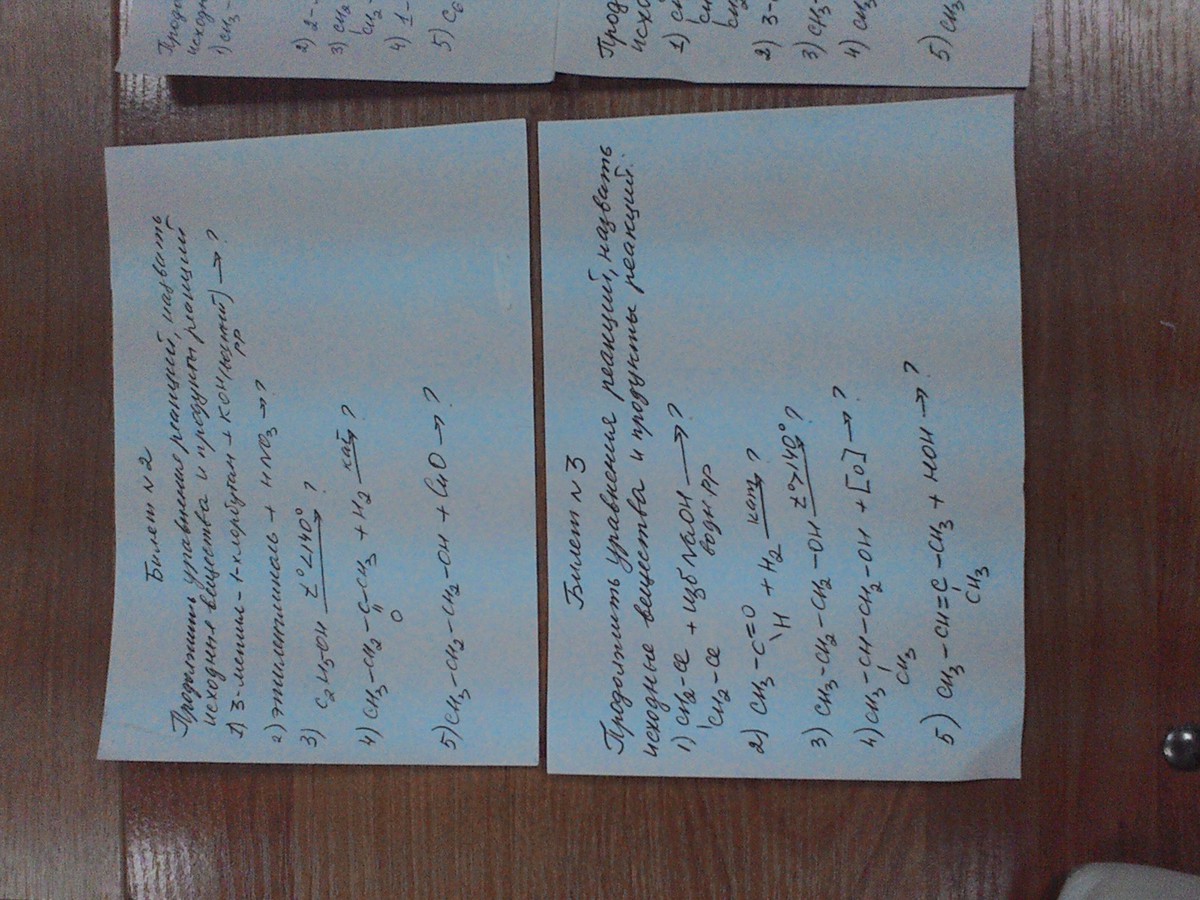 Продо
исходн
1) CH3-
2) 2-
3) CH2
CH2-
4) 1-
5) C6
Прод
исхо
1) CH
CH2
2) 3-
3) CH3
4) CH3
5) CH3
Билет N 2
Продолжить уравнения реакций, назвать
исходные вещества и продукты реакций
1) 3-метил-1-хлорбутан + KOH (водный) → ?
рр
2) этиленгликоль + HNO3 → ?
3) C2H5OH t°<140° → ?
4) CH3-CH2-C-CH3 + H2 кат → ?
O
5) CH3-CH2-CH2-OH + CuO → ?
Билет N 3
Продолжить уравнения реакций, назвать
исходные вещества и продукты реакций.
1) CH2-Cl + изб NaOH → ?
CH2-Cl водн рр
2) CH3-C=O + H2 кат → ?
H
3) CH3-CH2-CH2-OH t°>140° → ?
4) CH3-CH-CH2-OH + [O] → ?
CH3
5) CH3-CH=C-CH3 + HOH → ?
CH3